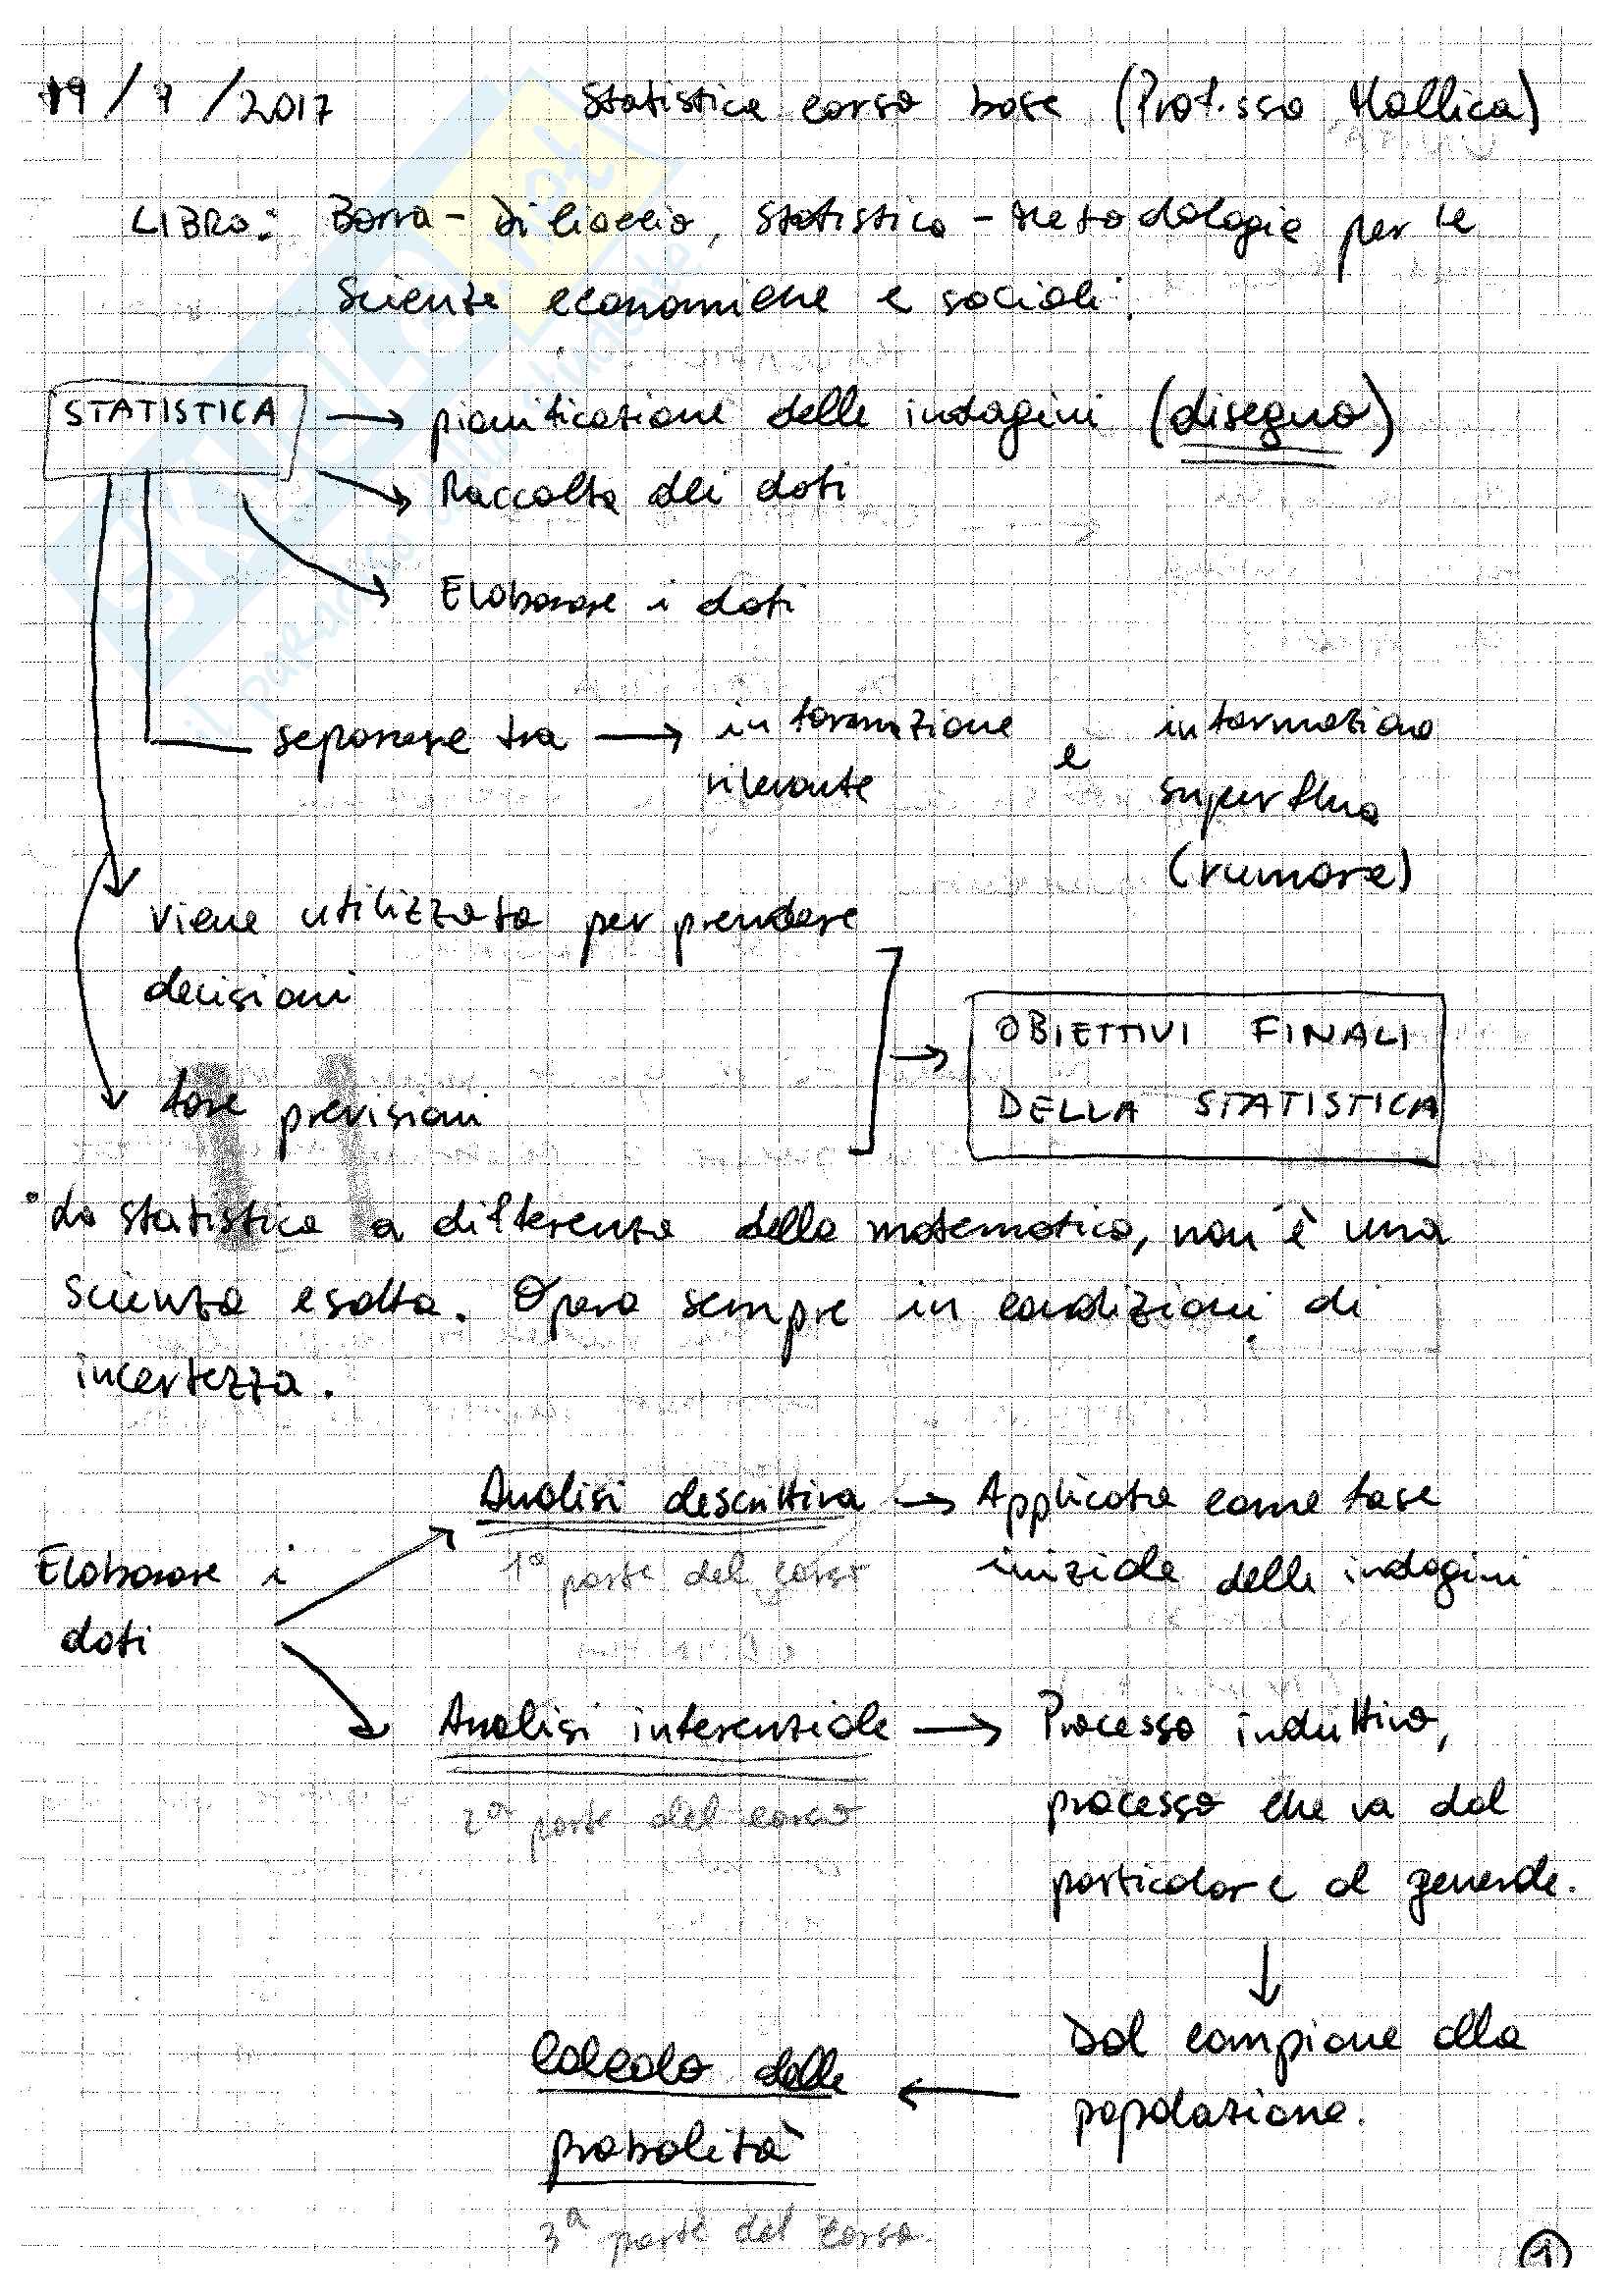 19/7/2017 Statistica corso base (Prof.ssa Mollica)
LIBRO: Borra - Di Ciaccio, Statistica - Metodologie per le
Scienze economiche e sociali.
STATISTICA → pianificazione delle indagini (disegno)
→ Raccolta dei dati
→ Elaborare i dati
separare tra → informazione e informazione
rilevante superflua
(rumore)
viene utilizzata per prendere
decisioni
→ OBIETTIVI FINALI
DELLA STATISTICA
fare previsioni
• La statistica a differenza della matematica, non è una
scienza esatta. Opera sempre in condizioni di
incertezza.
Analisi descrittiva → Applicata come fase
1ª parte del corso iniziale delle indagini
Elaborare i
dati
Analisi inferenziale → Processo induttivo,
2ª parte del corso processo che va dal
particolare al generale.
↓
Calcolo delle ← Dal campione alla
probalità popolazione.
3ª parte del corso.
1